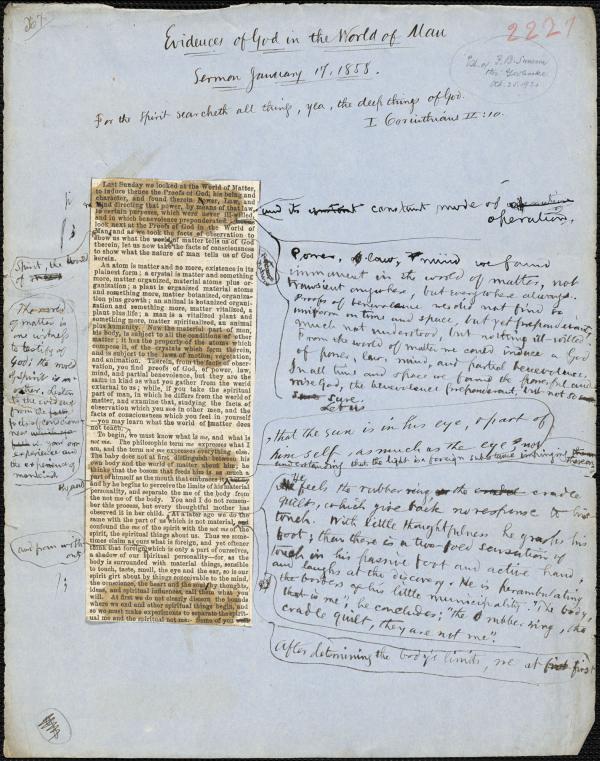 267.
2227
Evidences of God in the World of Man
Sermon January 17, 1858.
Gift of F. B. Sanborn
For the Spirit searcheth all things, yea, the deep things of God.
I Corinthians II : 10.
Last Sunday we looked at the World of Matter,
to induce thence the Proofs of God, his being and
character, and found therein Power, Law, and
Mind directing that power, by means of that law,
to certain purposes, which were never ill-willed,
and in which benevolence preponderated.
look next at the Proofs of God in the World of
Man, and as we took the facts of observation to
show us what the world of matter tells us of God
therein, let us now take the facts of consciousness
to show what the nature of man tells us of God
herein.
An atom is matter and no more, existence in its
plainest form; a crystal is matter and something
more, matter organized, material atoms plus or-
ganization; a plant is organized material atoms
and something more, matter botanized, organiza-
tion plus growth; an animal is botanized organi-
zation and something more, matter vitalized, a
plant plus life; a man is vitalized plant and
something more, matter spiritualized, an animal
plus humanity. Now the material part of man,
his body, is subject to all the conditions of other
matter; it has the property of the atoms which
compose it, of the crystals which form therein,
and is subject to the laws of motion, vegetation
and animation. Herein, from the facts of obser-
vation, you find proofs of God, of power, law,
mind, and partial benevolence, but they are the
same in kind as what you gather from the world
external to us; while, if you take the spiritual
part of man, in which he differs from the world of
matter, and examine that, studying the facts of
observation which you see in other men, and the
facts of consciousness which you feel in yourself
—you may learn what the world of matter does
not teach.
To begin, we must know what is me, and what is
not me. The philosophic term me expresses what I
am, and the term not me expresses everything else.
The baby does not at first distinguish between his
own body and the world of matter about him; he
thinks that the bosom that feeds him is as much a
part of himself as the mouth that embraces it,
and by he begins to perceive the limits of his material
personality, and separate the me of the body from
the not me of the body. You and I do not remem-
ber this process, but every thoughtful mother has
observed it in her child. At a later age we do the
same with the part of us which is not material, and
confound the me of the spirit with the not me of the
spirit, the spiritual things about us. Thus we some-
times claim as ours what is foreign, and yet oftener
think that foreign which is only a part of ourselves,
a shadow of our spiritual personality—for as the
body is surrounded with material things, sensible
to touch, taste, smell, the eye and the ear, so is our
spirit girt about by things perceivable to the mind,
the conscience, the heart and the soul, by thoughts,
ideas, and spiritual influences, call them what you
will. At first we do not clearly discern the bounds
where we end and other spiritual things begin, and
so we must take experiments to separate the spirit-
ual me and the spiritual not me. Some of you
and its constant mode of
operation,
Power, law, mind we found
immanent in the world of matter, not
transient anywhere, but everywhere always.
Proofs of benevolence we did not find so
uniform in time and space, but yet preponderant,
much not understood, but nothing ill-willed.
From the world of matter we could induce a God
of power, law, mind, and partial benevolence.
In all time and space we found the powerful and
wise God, the benevolence preponderant, but not so
sure.
Let us
that the sun is in his eye, a part of
himself, as much as the eye? not
understanding that the light is foreign substance impinging
He
feels the rubber ring or the cradle
quilt, which give back no response to his
touch. With little thoughtfulness he grasps his
foot; then there is a two fold sensation
in his passive foot and active hand
and laughs at the discovery. He is perambulating
the borders of his little municipality. "The body,
that is me", he concludes; "the rubber ring, the
cradle quilt, they are not me".
After determining the body's limits, we at first
Spirit, the
The world
of matter is
one witness
to testify of
God; the world
of spirit is an-
other. Listen
to the evidence
from the
facts of consciousness
in your own
experience and
the experience of
mankind
and from with-
out